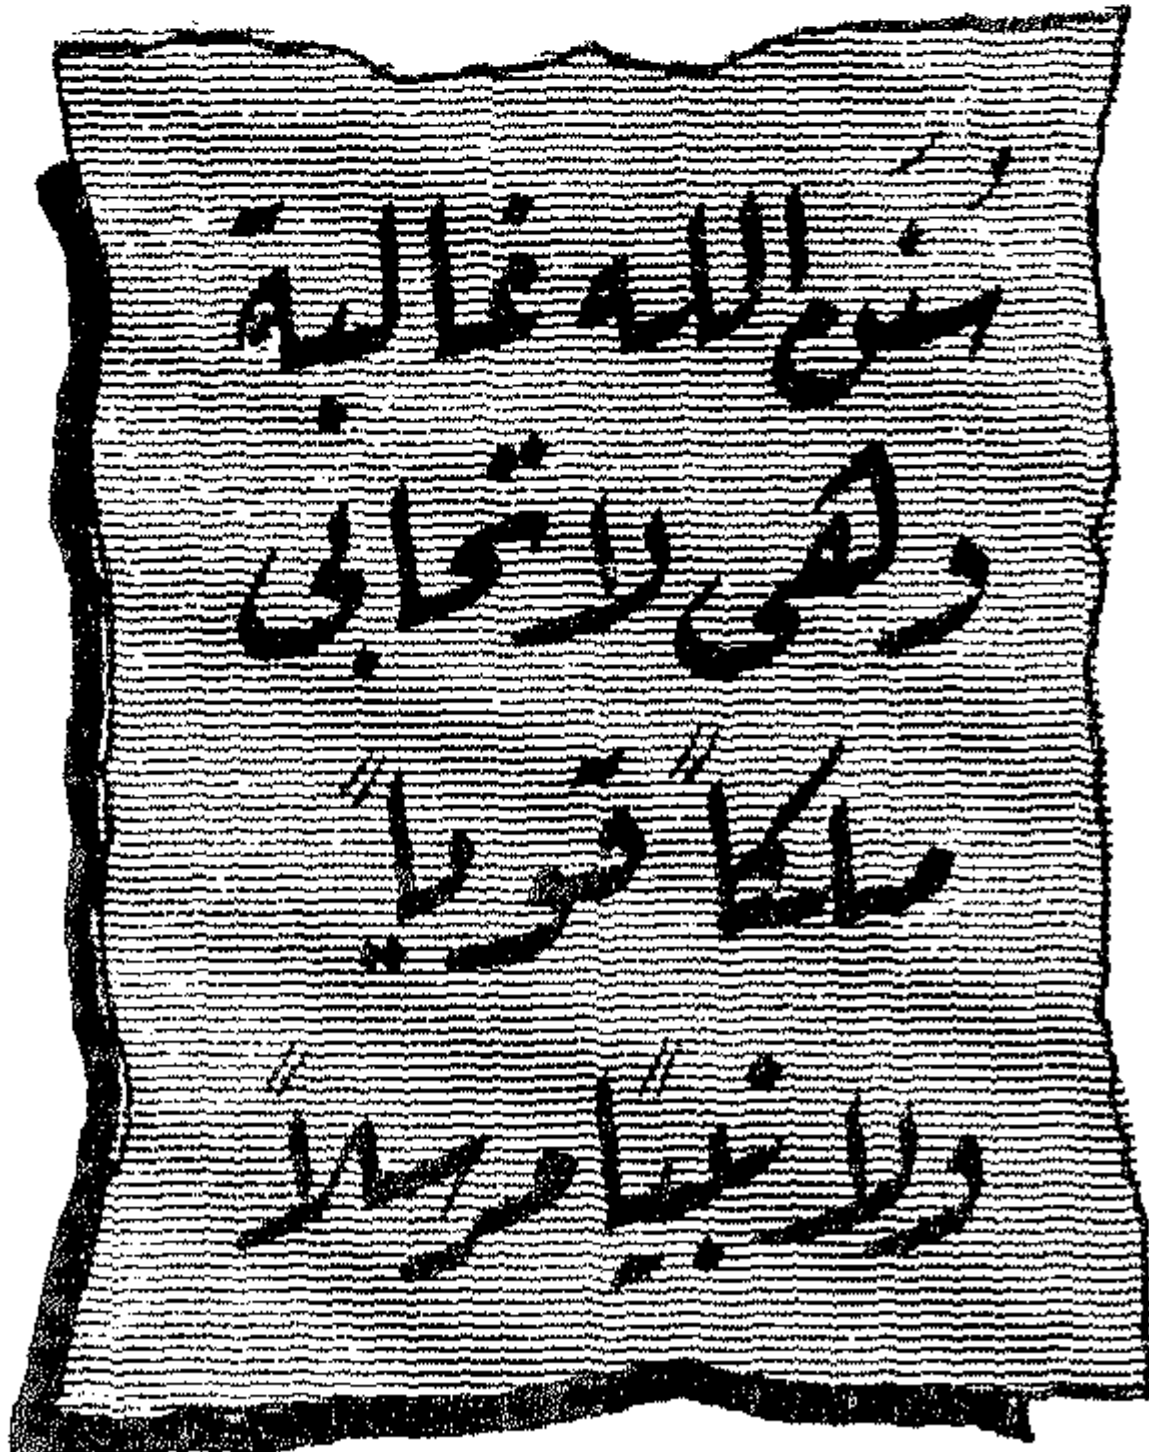 سُنَن الله غالبة
وهى لا تحابى
ملكاً قوياً
ولا نبياً مرسلاً